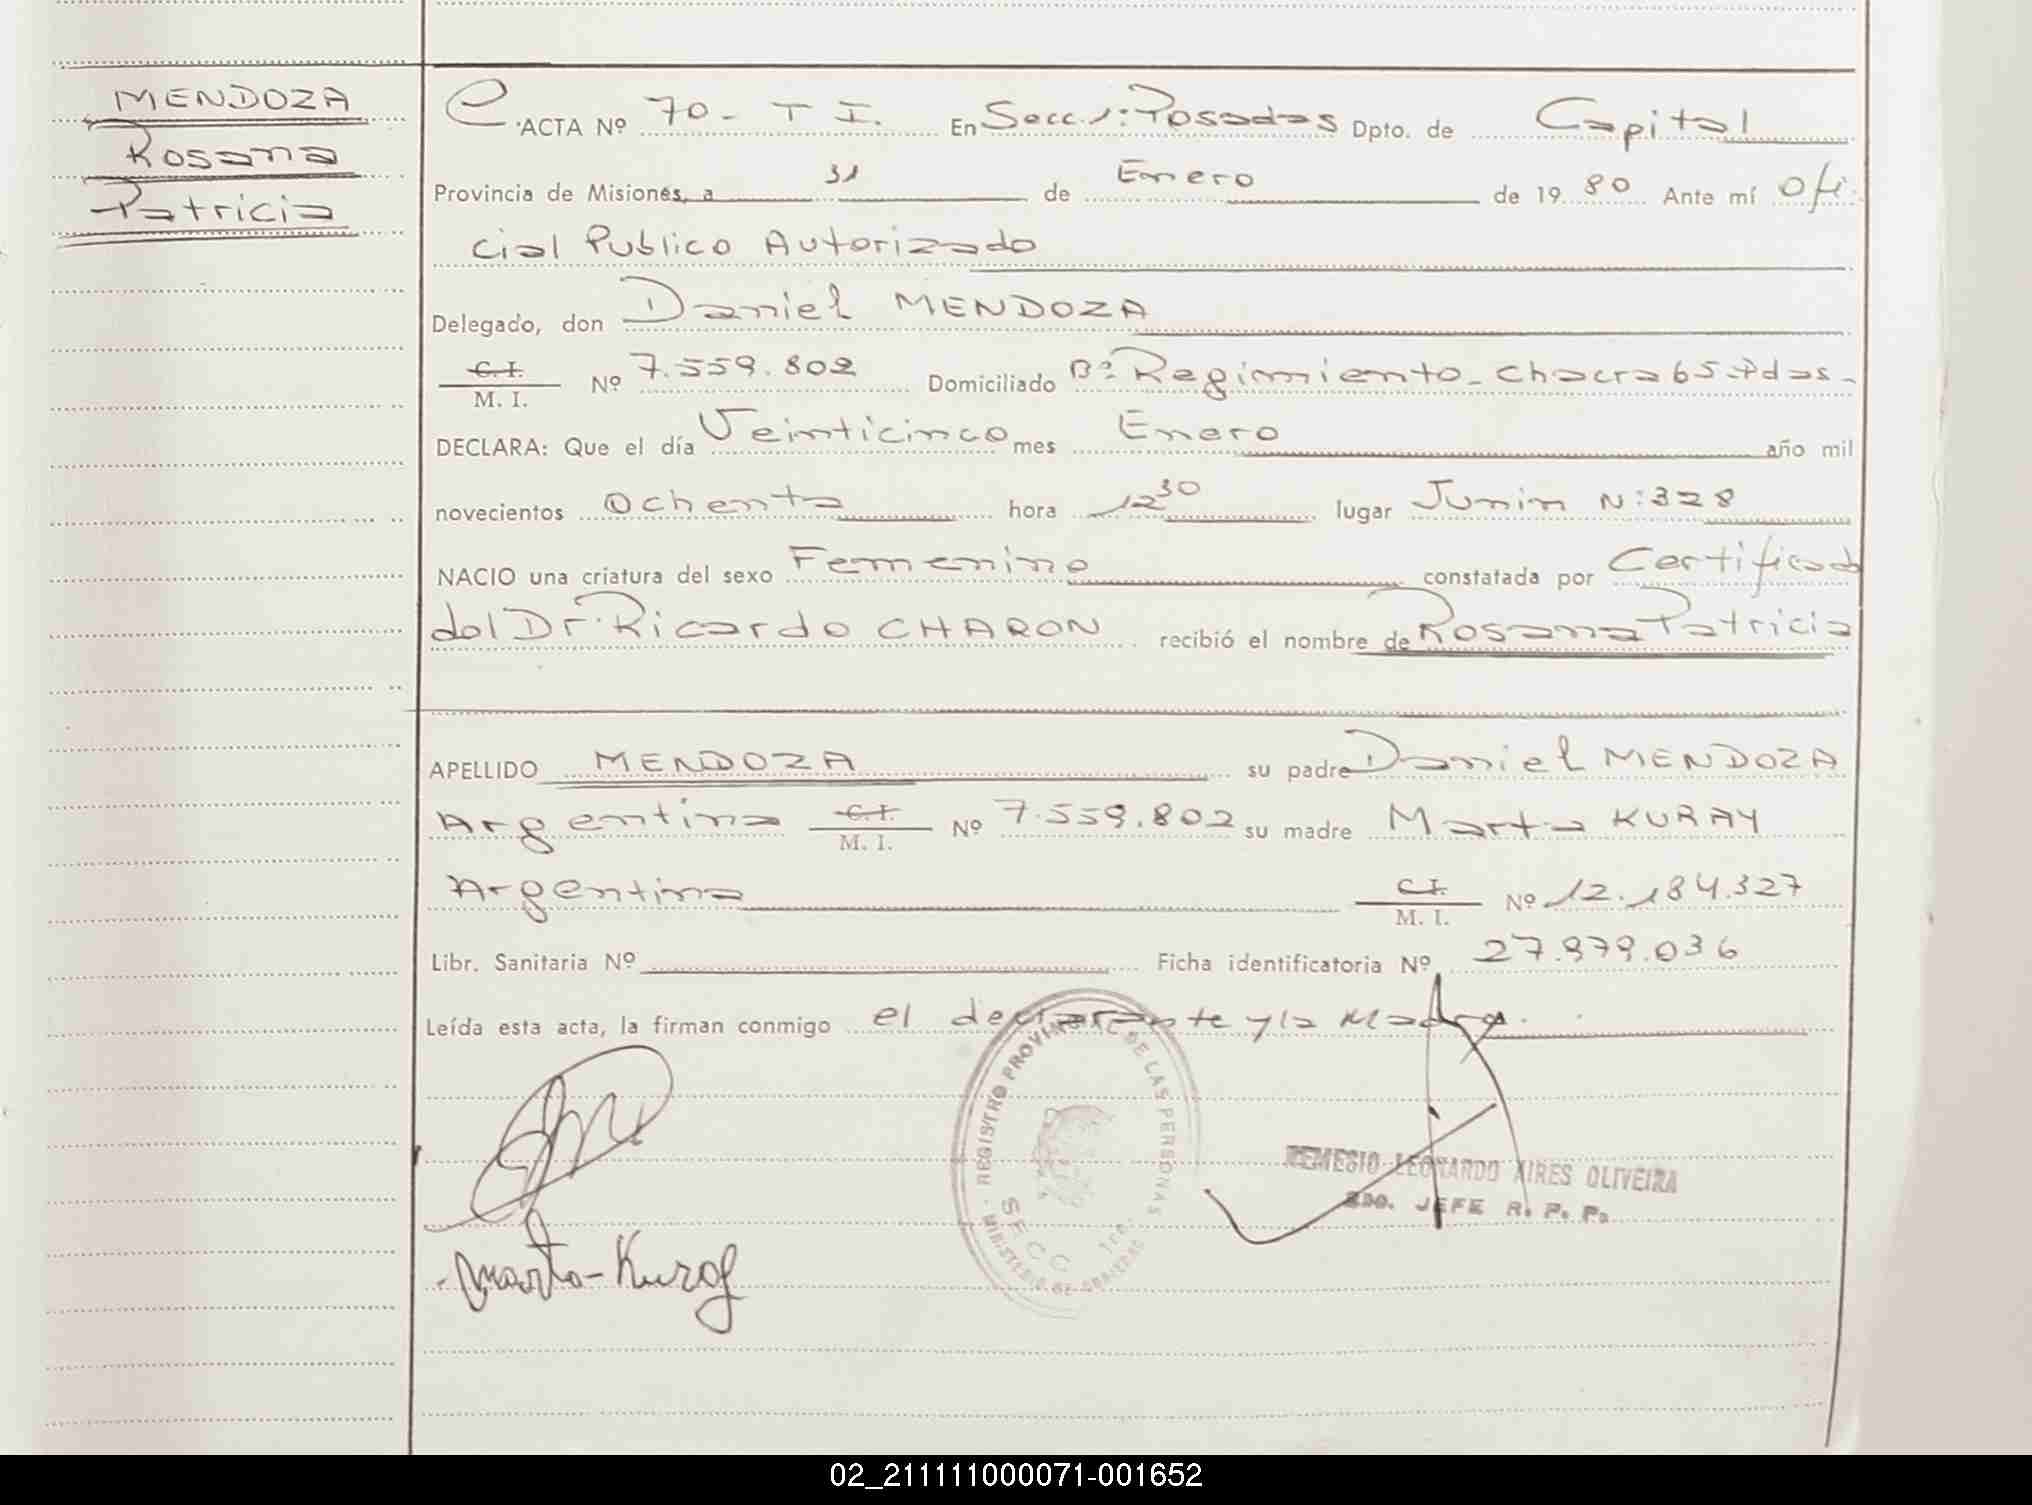 MENDOZA
Rosana
Patricia
ACTA Nº 70 - T I. En Secc. 1: Posadas Dpto. de Capital
Provincia de Misiones, a 31 de Enero de 1980 Ante mí Ofi
cial Publico Autorizado
Delegado, don Daniel MENDOZA
C. I.
M. I. Nº 7.559.802 Domiciliado Bº Regimiento - chacra 65 - Pdas -
DECLARA: Que el día Veinticinco mes Enero año mil
novecientos Ochenta hora 12 30 lugar Junin N: 328
NACIO una criatura del sexo Femenino constatada por Certificado
del Dr. Ricardo CHARON recibió el nombre de Rosana Patricia
APELLIDO MENDOZA su padre Daniel MENDOZA
Argentina C. I. M. I. Nº 7.559.802 su madre Marta KURAY
Argentina C. I. M. I. Nº 12.184.327
Libr. Sanitaria Nº Ficha identificatoria Nº 27.979.036
Leída esta acta, la firman conmigo el declarante y la Madre.
REGISTRO PROVINCIAL DE LAS PERSONAS
SECC 1ra.
MINISTERIO DE GOBIERNO
REMEGIO LEONARDO AIRES OLIVEIRA
JEFE R. P. P.
Marta - Kuray
02_211111000071-001652